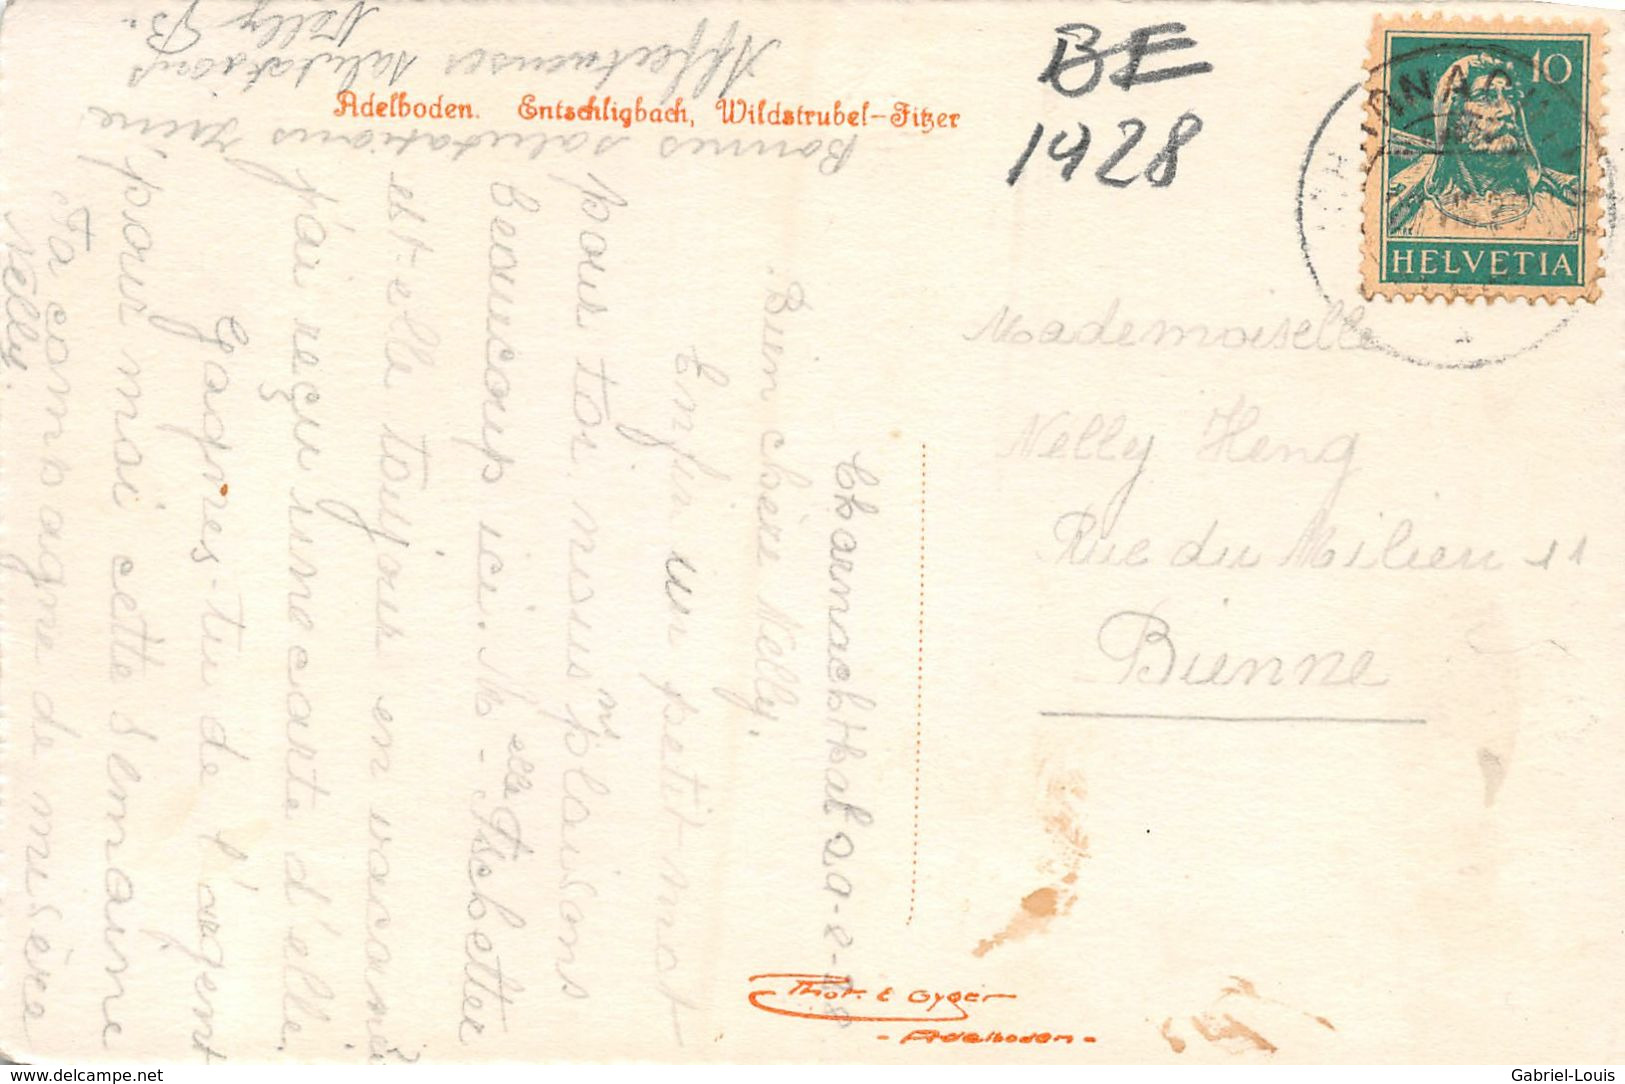 Adelboden. Entschligbach, Wildstrubel-Fitzer
BE
1928
10
HELVETIA
Mademoiselle
Nelly Heng
Rue du Milieu 11
Bienne
Bien chère Nelly,
Enfin un petit mot
pour toi, nous n/ plaisons
beaucoup ici. M-elle Tschetter
est-elle toujour en vacan
j'ai reçu une carte d'elle.
Gagnes-tu de l'argent
pour moi cette semaine
Ta compagne de misère
Nelly.
Bonnes salutations
Affectueuses salutations
Nelly B.
Phot. E Gyger
- Adelboden -
delcampe.net
Gabriel-Louis